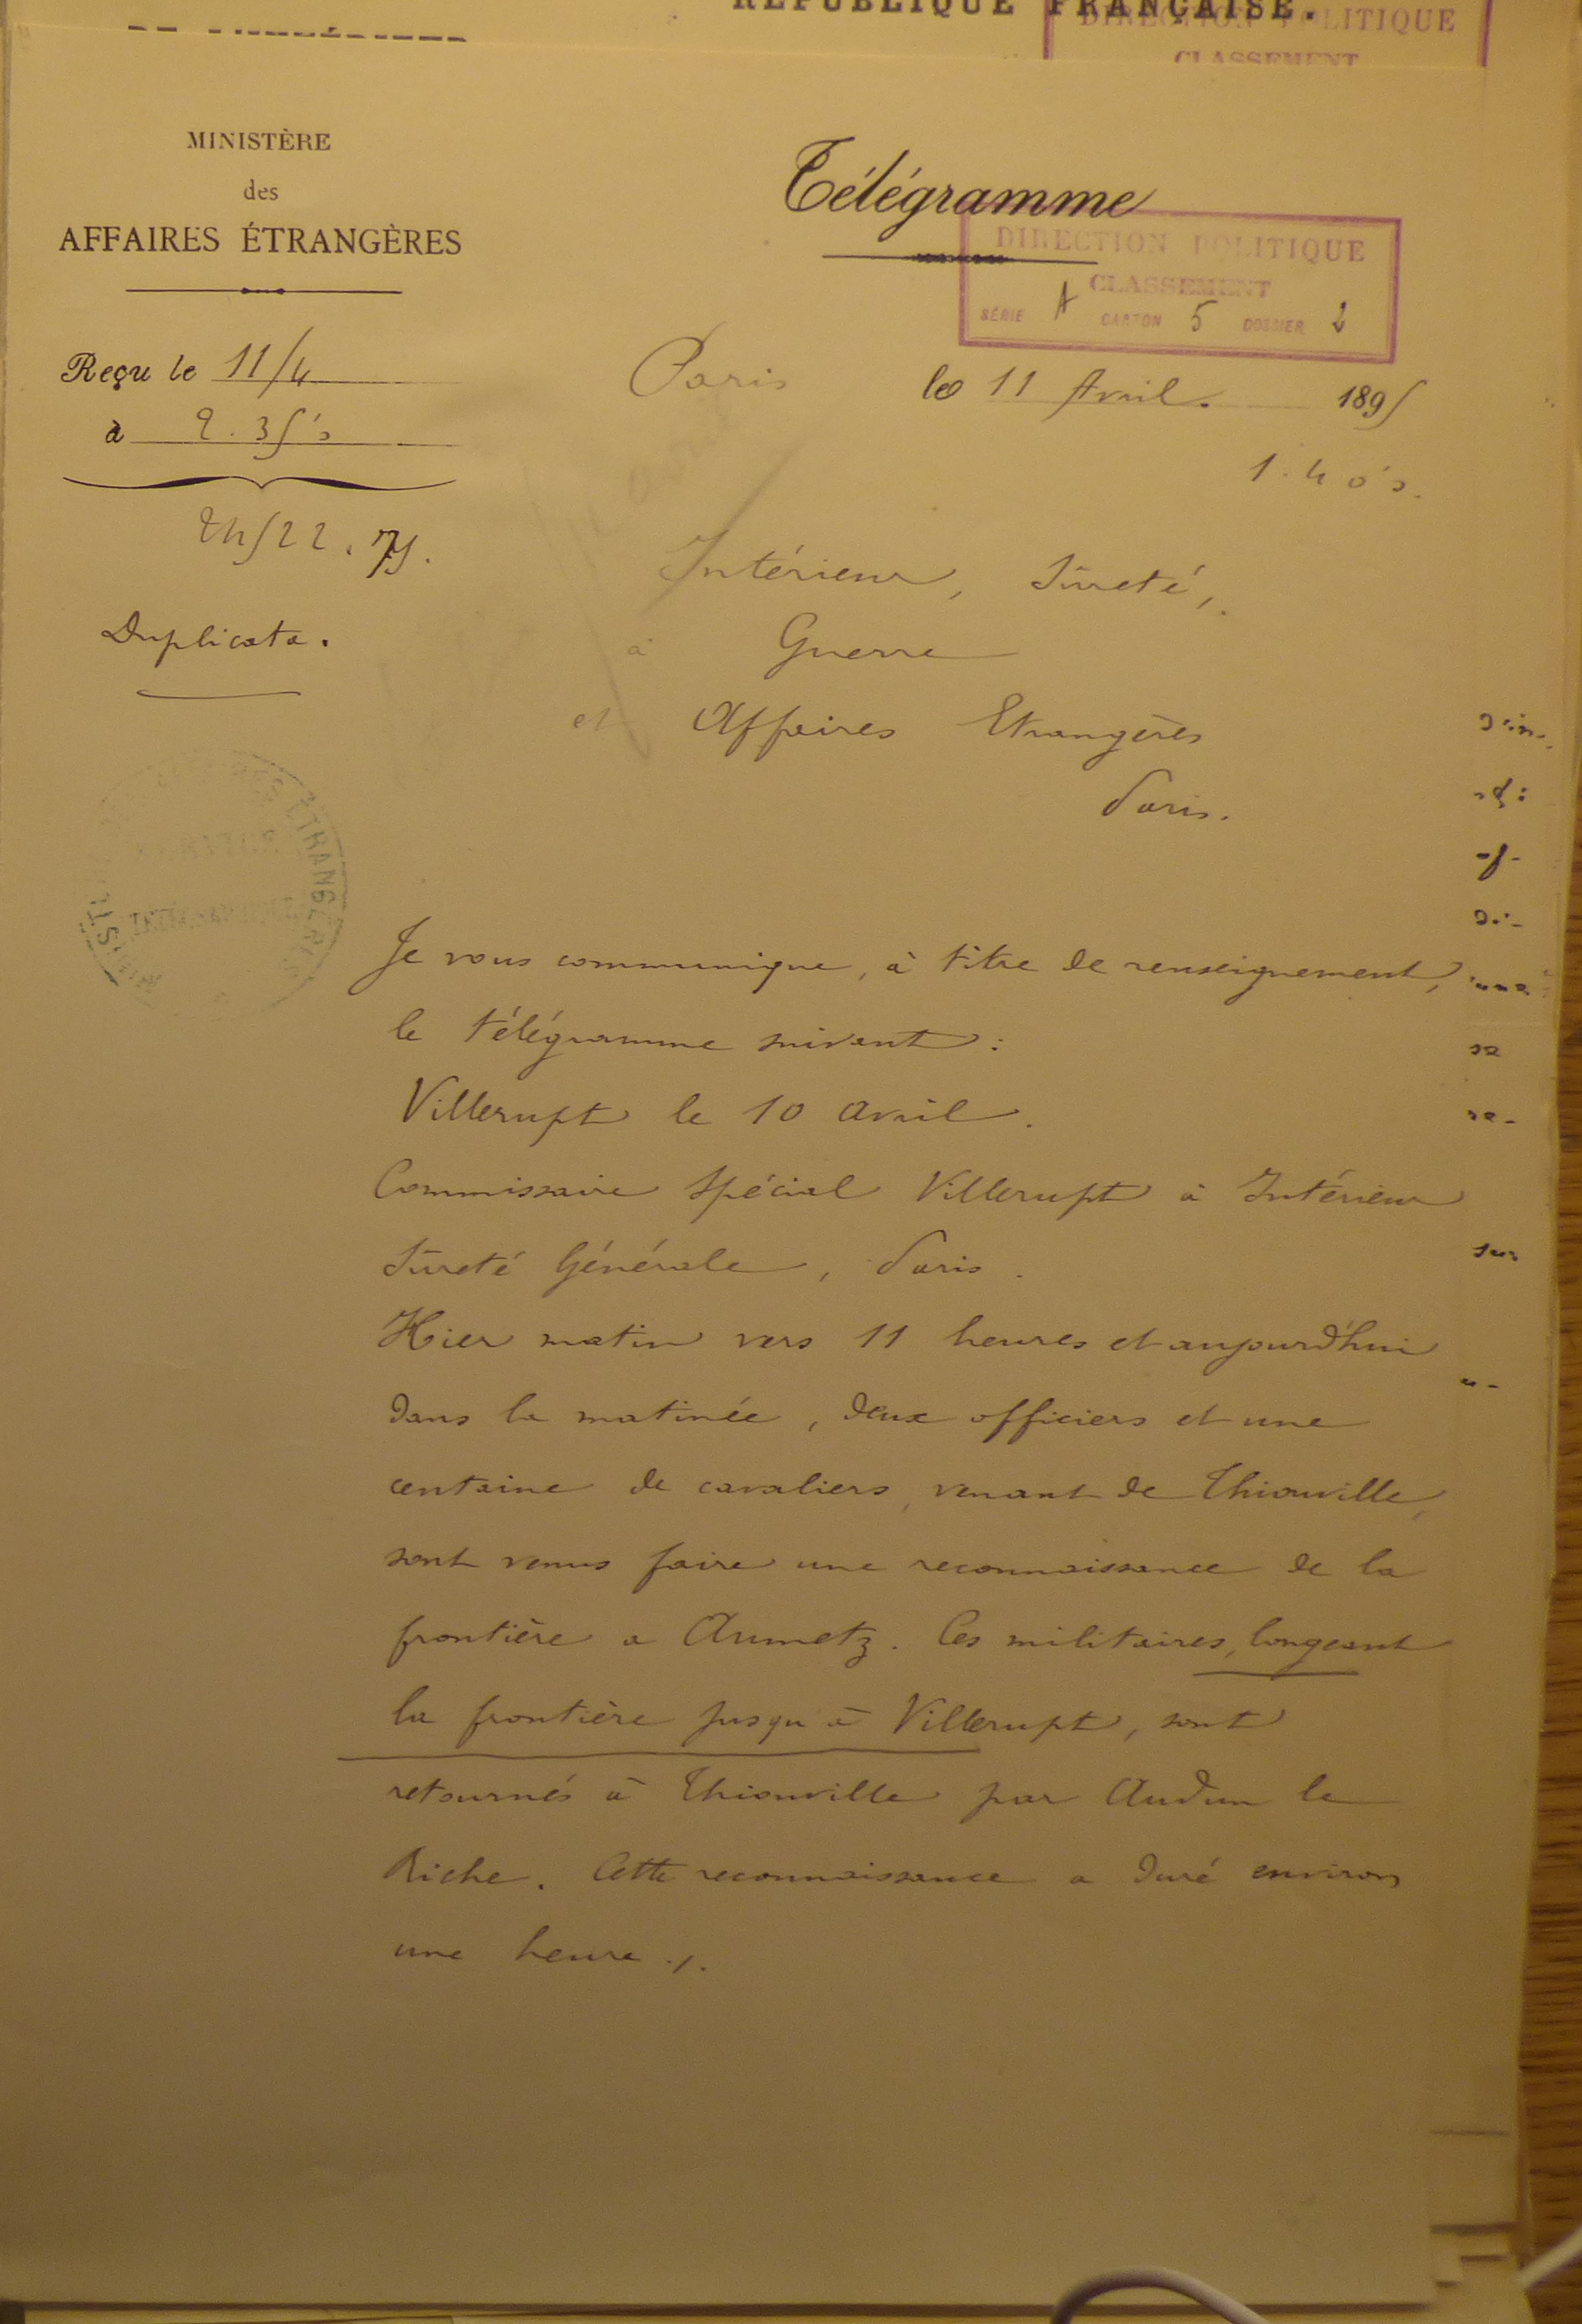 RÉPUBLIQUE FRANÇAISE.
DIRECTION POLITIQUE
CLASSEMENT
MINISTÈRE
des
AFFAIRES ÉTRANGÈRES
Reçu le 11/4
à 2.35 s
Duplicata.
Télégramme
DIRECTION POLITIQUE
CLASSEMENT
SÉRIE A CARTON 5 DOSSIER 2
Paris le 11 Avril. 1895
1.40 s.
Intérieur, Sûreté,
à Guerre
et Affaires Etrangères
Paris.
Je vous communique, à titre de renseignement,
le télégramme suivant :
Villerupt le 10 avril.
Commissaire Spécial Villerupt à Intérieur
Sûreté Générale, Paris.
Hier matin vers 11 heures et aujourd'hui
dans la matinée, deux officiers et une
centaine de cavaliers, venant de Thionville,
sont venus faire une reconnaissance de la
frontière a Aumetz. Ces militaires, longeant
la frontière jusqu'à Villerupt, sont
retournés à Thionville par Audun le
Riche. Cette reconnaissance a duré environ
une heure ./.